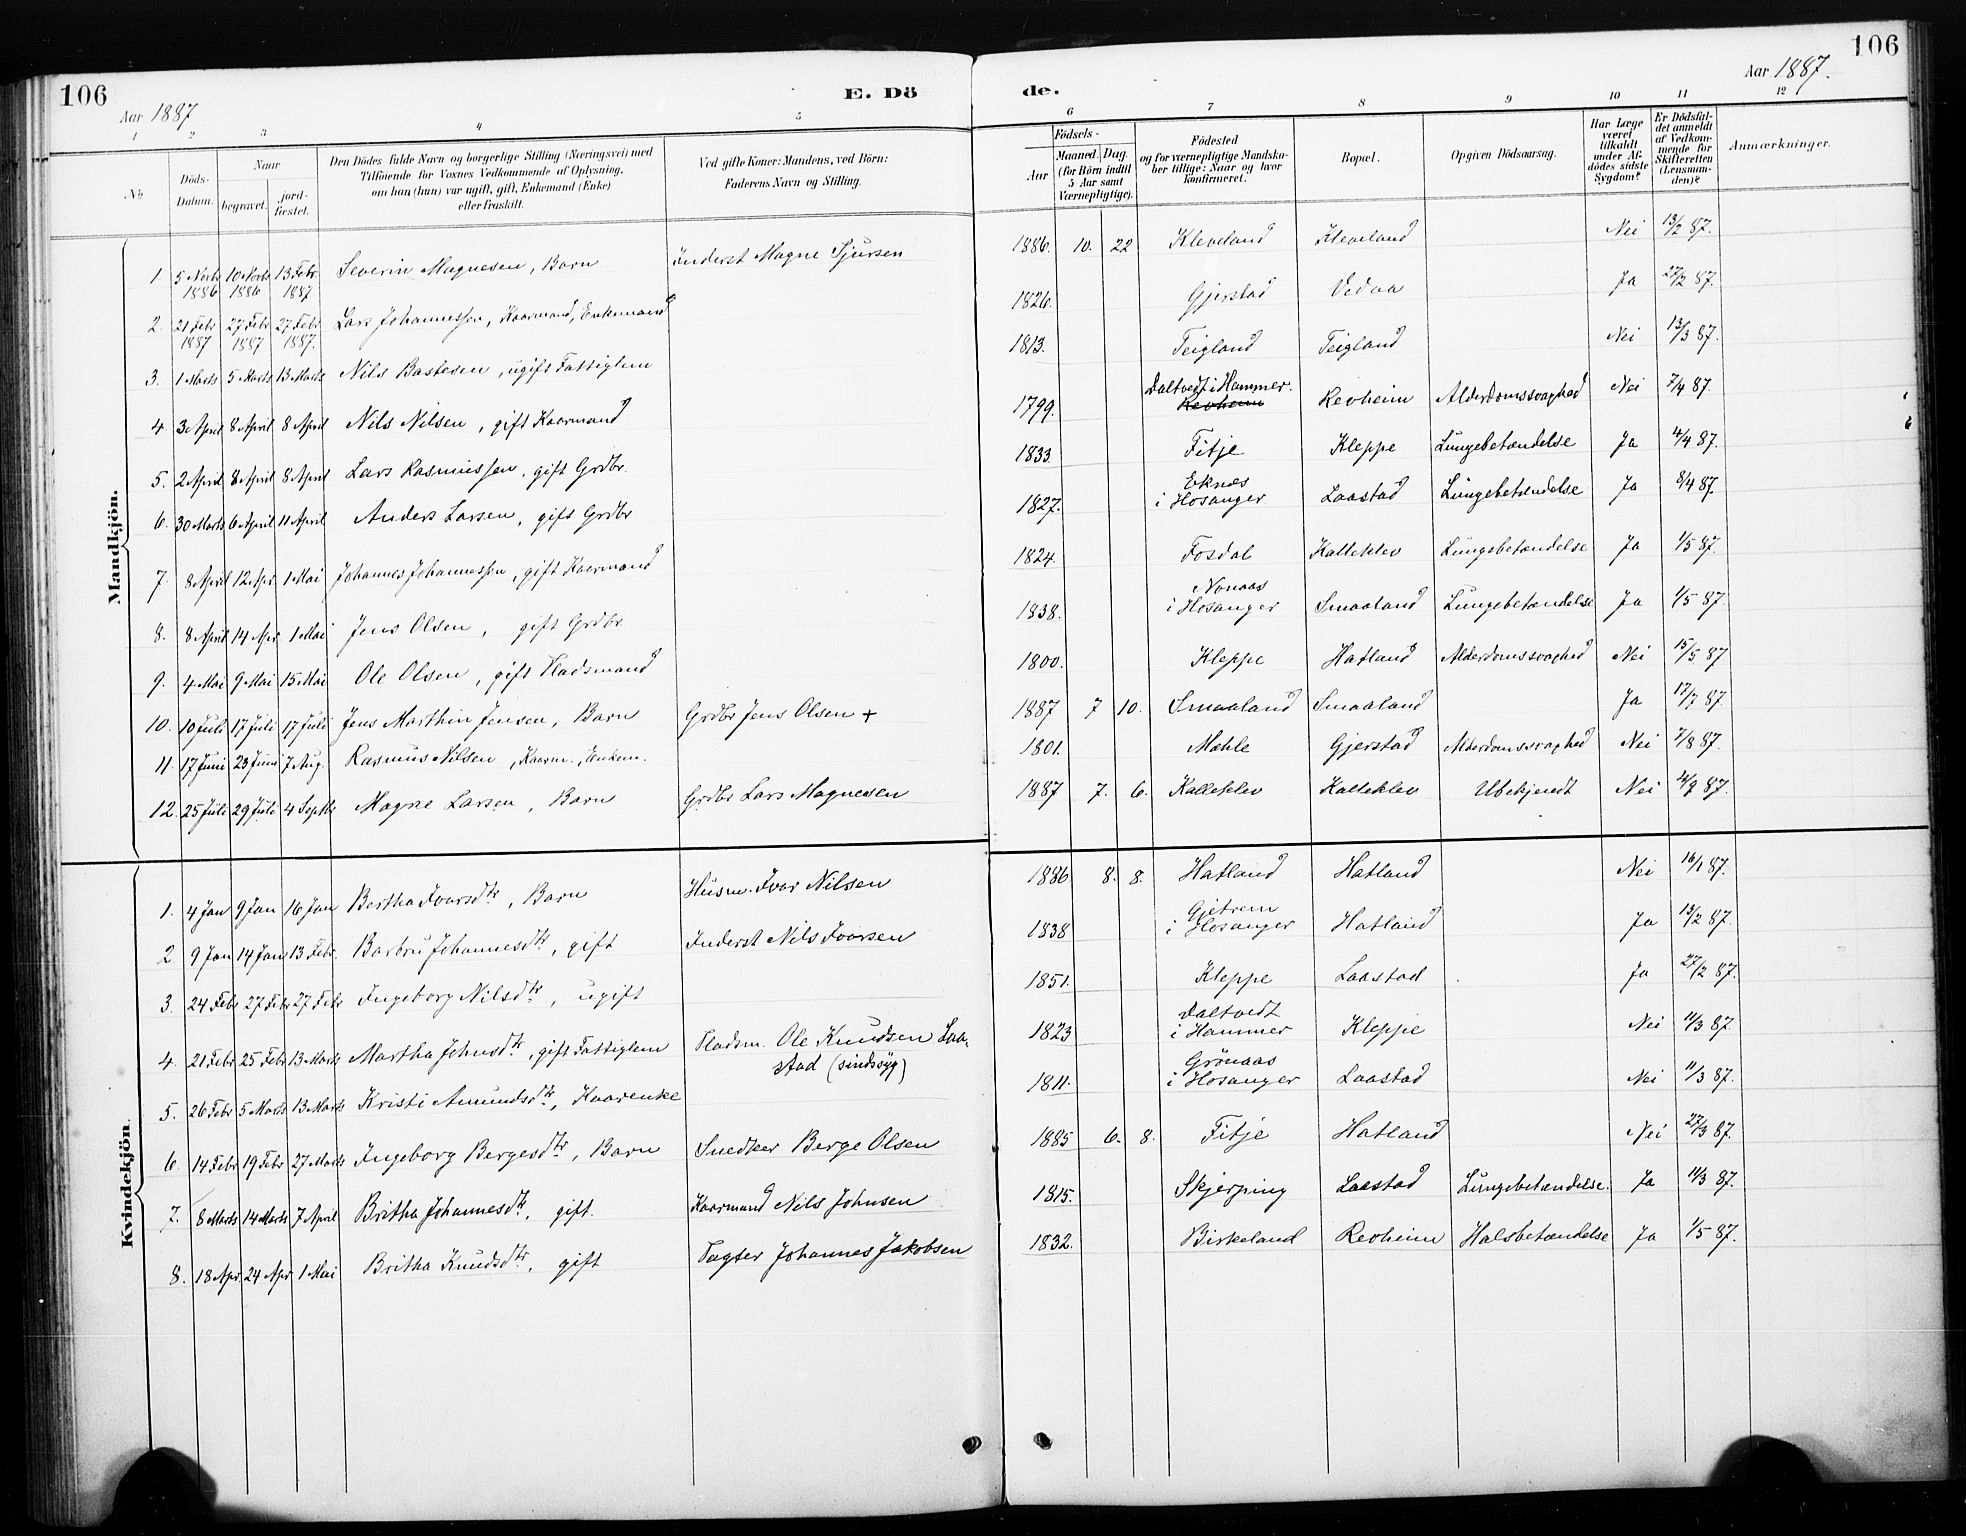 106
Aar 1887
E. Dö
de.
Aar 1887.
106
1 2 3 4 5
6 7 8 9 10 11 12
No
Döds-Datum.
Naar
begravet. jord-fæstet.
Den Dödes fulde Navn og borgerlige Stilling (Næringsvei) med
Tilföiende for Voxnes Vedkommende af Oplysning,
om han (hun) var ugift, gift, Enkemand (Enke)
eller fraskilt.
Ved gifte Koner: Mandens, ved Börn:
Faderens Navn og Stilling.
Födsels-
Aar
Maaned. Dag.
(for Börn indtil
5 Aar samt
Værnepligtige).
Födested
og for værnepligtige Mandska-
ber tillige: Naar og hvor
konfirmeret.
Bopæl.
Opgiven Dödsaarsag.
Har Læge
været
tilkaldt
under Af-
dödes sidste
Sygdom?
Er Dödsfal-
det anmeldt
af Vedkom-
mende for
Skifteretten
(Lensman-
den)?
Anmærkninger.
Mandkjön.
1. 5 Novbr 1886 10 Novbr 1886 13 Febr 1887 Severin Magnesen, Barn Inderst Magne Sjursen 1886. 10. 22 Kleveland Kleveland Nei 13/2 87.
2. 21 Febr 1887 27 Febr 1887 27 Febr 1887. Lars Johannessen, Kaarmand, Enkemand 1826. Gjerstad Vedaa Ja 27/2 87.
3. 1 Marts 5 Marts 13 Marts Nils Bastesen, ugift Fattiglem 1813. Teigland Teigland Nei 13/3 87.
4. 3 April 8 April 8 April Nils Nilsen, gift Kaarmand 1799. Daltvedt i Hammer. Revheim Revheim Alderdomssvaghed Nei 7/4 87.
5. 2 April 8 April 8 April Lars Rasmussen, gift Grdbr. 1833. Fitje Kleppe Lungebetændelse Ja 4/4 87.
6. 30 Marts 6 April 11 April Anders Larsen, gift Grdbr 1827. Eknæs i Hosanger Laastad Lungebetændelse Ja 8/4 87.
7. 8 April 12 Apr 1 Mai Johannes Johannessen, gift Kaarmand 1824. Fosdal Kalleklev Lungebetændelse Ja 1/5 87.
8. 8 April 14 Apr 1 Mai Jens Olsen, gift Grdbr 1838. Nonaas i Hosanger Smaaland Lungebetændelse Ja 1/5 87.
9. 4 Mai 9 Mai 15 Mai Ole Olsen, gift Pladsmand 1800. Kleppe Hatland Alderdomssvaghed Nei 15/5 87
10. 10 Juli 17 Juli 17 Juli Jens Marthin Jensen, Barn Grdbr Jens Olsen + 1887 7 10. Smaaland Smaaland Ja 17/7 87.
11. 17 Juni 23 Juni 7 Aug. Rasmus Nilsen, Kaarm., Enkem. 1801. Mæhle Gjerstad Alderdomssvaghed Nei 7/8 87.
12. 25 Juli 29 Juli 4 Septbr Magne Larsen, Barn Grdbr Lars Magnesen 1887 7. 6. Kalleklev Kalleklev Ubekjendt Nei 4/9 87.
Kvindekjön.
1. 4 Jan 9 Jan 16 Jan Bertha Ivarsdtr, Barn Husm. Ivar Nilsen 1886 8. 8. Hatland Hatland Nei 16/1 87.
2 9 Jan 14 Jan 13 Febr. Barbru Johannesdtr, gift Inderst Nils Ivarsen 1838 Gjetrem i Hosanger Hatland Ja 13/2 87.
3. 24 Febr 27 Febr 27 Febr Ingeborg Nilsdtr, ugift 1851. Kleppe Laastad Ja 27/2 87.
4. 21 Febr 25 Febr 13 Marts Martha Johnsdtr, gift Fattiglem Pladsm. Ole Knudsen Laa-stad (sindssyg) 1823 Daltvedt i Hammer Kleppe Nei 11/3 87.
5. 26 Febr 5 Marts 13 Marts Kristi Amundsdtr, Kaarenke 1811. Grønaas i Hosanger Laastad Nei 11/3 87.
6. 14 Febr 19 Febr 27 Marts Ingeborg Bergesdtr, Barn Snedker Berge Olsen 1885 6. 8. Fitje Hatland Nei 27/3 87.
7. 8 Marts 14 Marts 7 April Britha Johannesdtr, gift. Kaarmand Nils Johnsen 1815. Skjerping Laastad Lungebetændelse. Ja 11/3 87.
8. 18 Apr 24 Apr 1 Mai Britha Knudsdtr, gift Vagter Johannes Jakobsen 1832. Birkeland Revheim Halsbetændelse Ja 1/5 87.